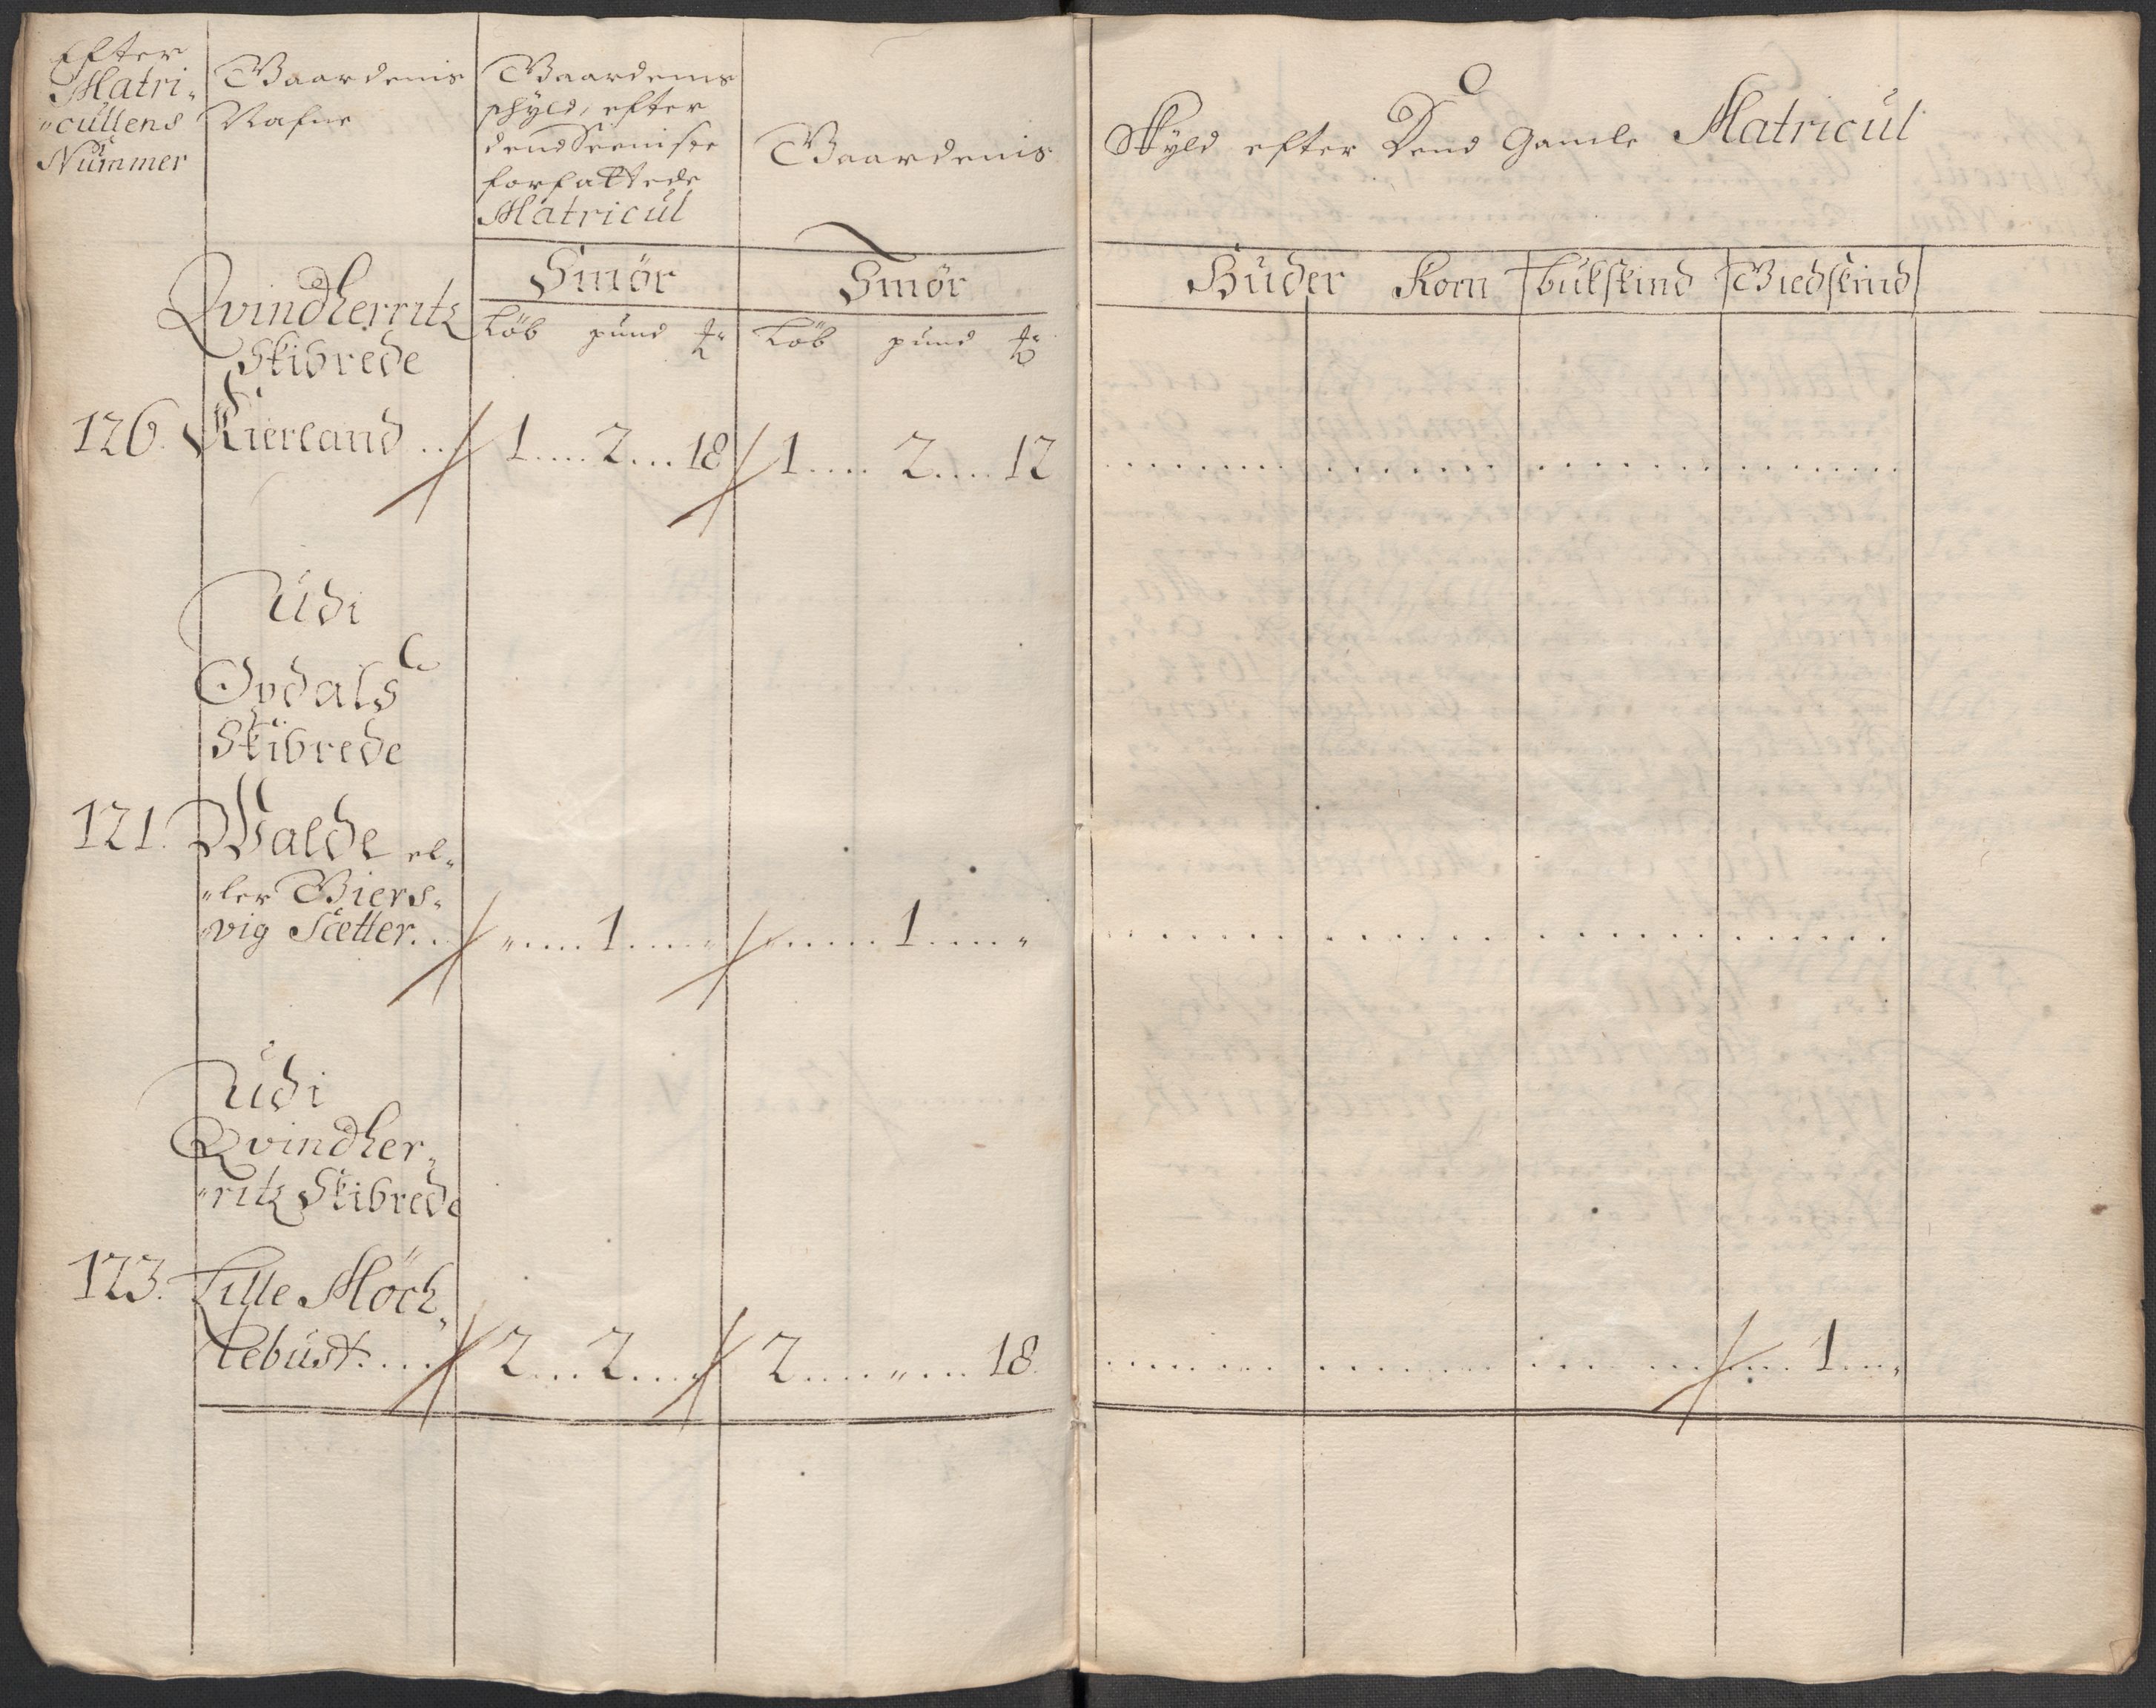 Efter
Matri„
„cullens
Nummer
Gaardenis
Nafne
Gaardenis
schyld, efter
dend Seeniste
forfattede
Matricul
Gaardenis
Skyld efter Dend Gamle Matricul
Smör
Smör
Huder Korn bukskind Giedskind
Löb pund
Löb pund
Qvindherritz
Skibrede
126. Kierland .. 1 .... 2 ... 18 1 .... 2 .... 12
Udi
Opdals
Skibrede
121. Walde el„
„ler Giers„
„vig Sætter... „ .... 1 .... „ „ .... 1 .... „
Udi
Qvindher„
„ritz Skibrede
123. Lille Möch„
lebust.... 2 ... 2 .... „ 2 .... „ ... 18 1 ... „